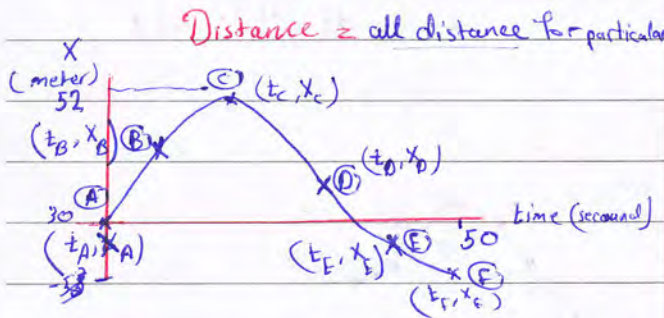 Distance = all distance for particular
X
(meter)
52
C
(t_C, X_C)
(t_B, X_B)
B
D
(t_D, X_D)
A
30
time (secound)
50
(t_A, X_A)
(t_E, X_E)
E
F
(t_F, X_F)